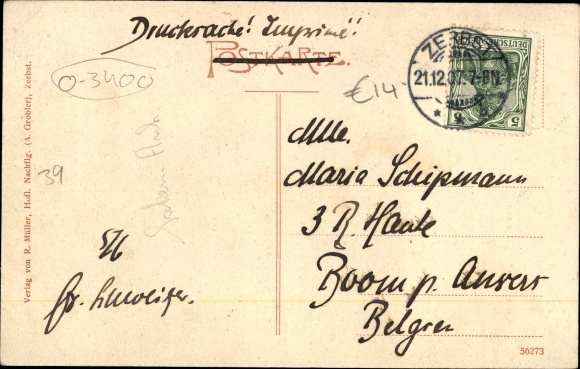 Drucksache! Imprimé!
POSTKARTE.
0-3400
€14
ZERBST
21.12.07. 7-8N.
DEUTSCHES
5
Mlle.
Maria Schipmann
3 R Haute
Boom p. Anvers
Belgien
39
Verlag von R. Müller, Hofl. Nachflg. (A. Grobler), Zerbst.
56273